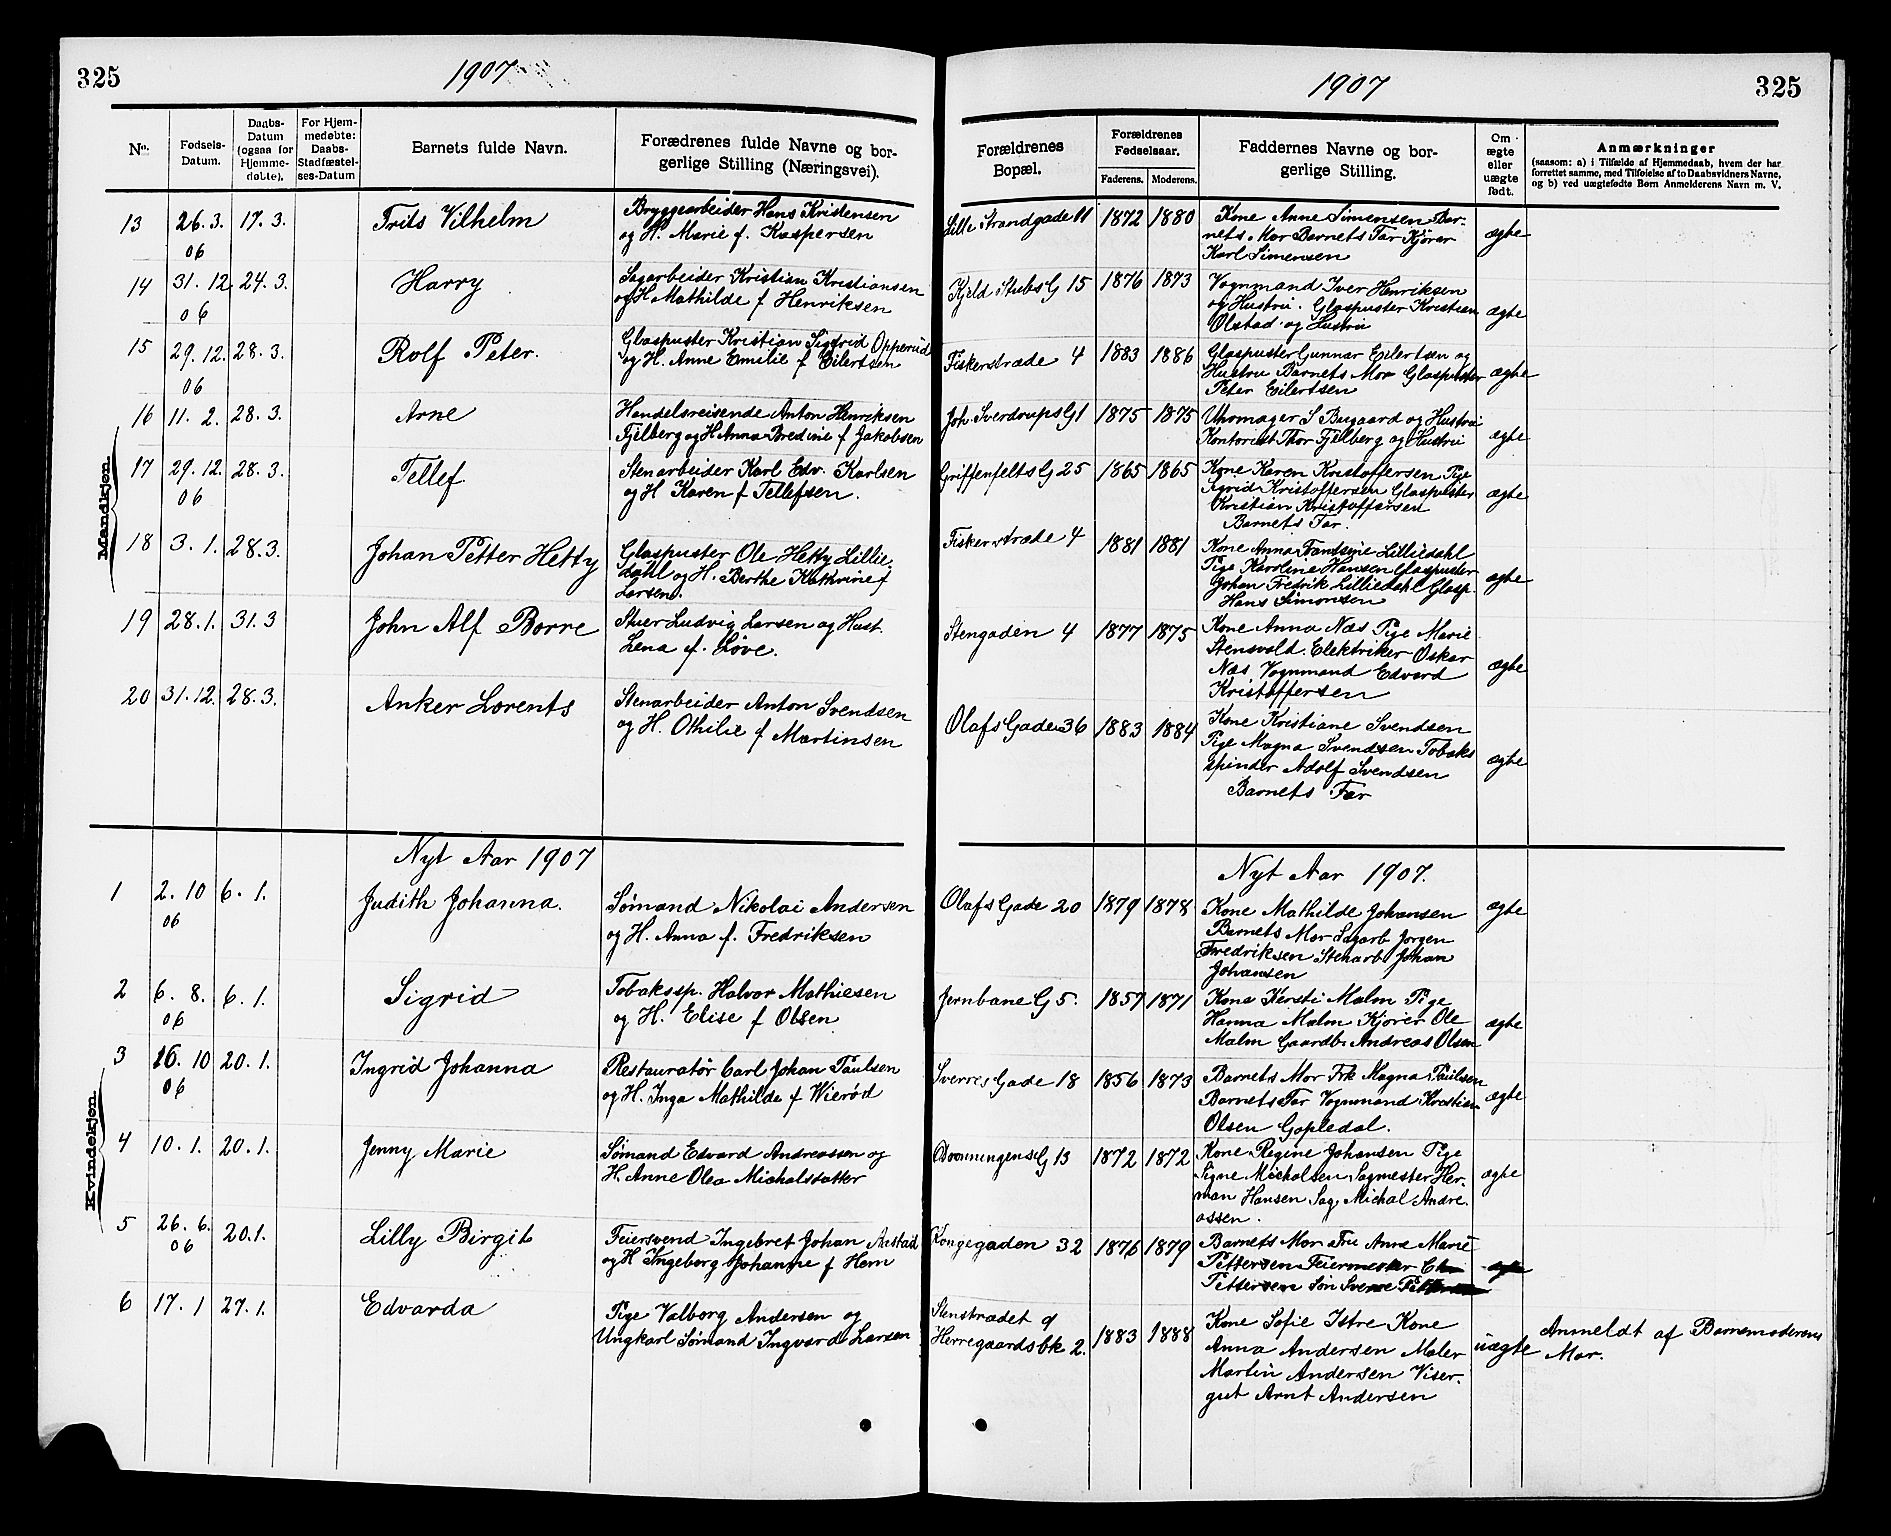 325
1907
No.
Fødsels-
Datum.
Daabs-
Datum
(ogsaa for
Hjemme-
døbte).
For Hjem-
medøbte:
Daabs-
Stadfæstel-
ses-Datum
Barnets fulde Navn.
Forædrenes fulde Navne og bor-
gerlige Stilling (Næringsvei).
Mandkjøn.
13 26. 3. 17. 3. Frits Vilhelm Bryggearbeider Hans Kristensen
06 og H. Marie f. Kaspersen
14 31. 12. 24. 3. Harry Sagarbeider Kristian Kristiansen
06 og H Mathilde f Henriksen
15 29. 12. 28. 3. Rolf Peter. Glaspuster Kristian Sigfrid Opperud
06 og H. Anne Emilie f Eilertsen
16 11. 2. 28. 3. Arne Handelsreisende Anton Henriksen
Fjelberg og H Anna Bredine f Jakobsen
17 29. 12. 28. 3. Tellef Stenarbeider Karl Edv. Karlsen
06 og H Karen f Tellefsen.
18 3. 1. 28. 3. Johan Petter Hetty Glaspuster Ole Hetty Lillie-
dahl og H. Berthe Kathrine f
Larsen.
19 28. 1. 31. 3 John Alf Borre Stuer Ludvig Larsen og Hust.
Lena f. Løve.
20 31. 12. 28. 3. Anker Lorents Stenarbeider Anton Svendsen
og H. Othilie f Martinsen
Nyt Aar 1907
Kvindekjøn.
1 2. 10 6. 1. Judith Johanna. Sømand Nikolai Andersen
06 og H. Anna f. Fredriksen
2 6. 8. 6. 1. Sigrid Tobakssp. Halvor Mathiesen
06 og H. Elise f Olsen
3 16. 10 20. 1. Ingrid Johanna Restauratør Carl Johan Paulsen
06 og H. Inga Mathilde f Wierød
4 10. 1. 20. 1. Jenny Marie Sømand Edvard Andreassen og
H. Anne Olea Michalsdatter
5 26. 6. 20. 1. Lilly Birgit Feiersvend Ingebret Johan Aastad
06 og H Ingeborg Johanne f Hem
6 17. 1 27. 1. Edvarda Pige Valborg Andersen og
Ungkarl Sømand Ingvard Larsen
1907
325
Forældrenes
Bopæl.
Forældrenes
Fødselsaar.
Faderens. Moderens.
Faddernes Navne og bor-
gerlige Stilling.
Om
ægte
eller
uægte
født.
Anmærkninger
(saasom: a) i Tilfælde af Hjemmedaab, hvem der har
forrettet samme, med Tilføielse af to Daabsvidners Navne,
og b) ved uægtefødte Børn Anmelderens Navn m. V.
Lille Strandgade 11 1872 1880 Kone Anne Simensen Bar- ægte
nets Mor Barnets Far Kjører
Karl Simensen
Kjeld Stubs G 15 1876 1873 Vognmand Iver Henriksen ægte
og Hustru. Glaspuster Kristian
Olstad og Hustru
Fiskerstræde 4 1883 1886 Glaspuster Gunnar Eilertsen og ægte
Hustru Barnets Mor Glaspuster
Peter Eilertsen
Joh. Sverdrups G 1 1875 1875 Uhrmager S Bugaard og Hustru ægte
Kontorist Thor Fjelberg og Hustru
Griffenfelts G 25 1865 1865 Kone Karen Kristoffersen Pige ægte
Sigrid Kristoffersen Glaspuster
Kristian Kristoffersen
Barnets Far.
Fiskerstræde 4 1881 1881 Kone Anna Frantsine Lilliedahl ægte
Pige Karoline Hansen Glaspuster
Johan Fredrik Lilliedahl Glasp.
Hans Simonsen
Stengaden 4 1877 1875 Kone Anna Næs Pige Marie ægte
Stensvold. Elektriker Oskar
Næs Vognmand Edvard
Kristoffersen
Olafs Gade 36 1883 1884 Kone Kristiane Svendsen ægte
Pige Magna Svendsen Tobaks
spinder Adolf Svendsen
Barnets Far
Nyt Aar 1907.
Olafs Gade 20 1879 1878 Kone Mathilde Johansen ægte
Barnets Mor Sagarb Jørgen
Fredriksen Stenarb Johan
Johansen
Jernbane G 5. 1857 1871 Kone Kersti Malm Pige ægte
Hanna Malm Kjører Ole
Malm Gaardbr Andreas Olsen
Sverres Gade 18 1856 1873 Barnets Mor Frk Magna Paulsen ægte
Barnets Far Vognmand Kristian
Olsen Gopledal.
Dronningens G 13 1872 1872 Kone Regine Johansen Pige ægte
Signe Michalsen Sagmester Her-
man Hansen Sag. Michal Andre-
assen.
Kongegaden 32 1876 1879 Barnets Mor Fru Anna Marie ægte
Pettersen Feiermester Chr
Pettersen Søn Sverre
Stenstrædet 9
Herregaardsbk 2. 1883 1888 Kone Sofie Istre Kone uægte Anmeldt af Barnemoderens
Anna Andersen Maler Mor.
Martin Andersen Viser-
gut Arnt Andersen